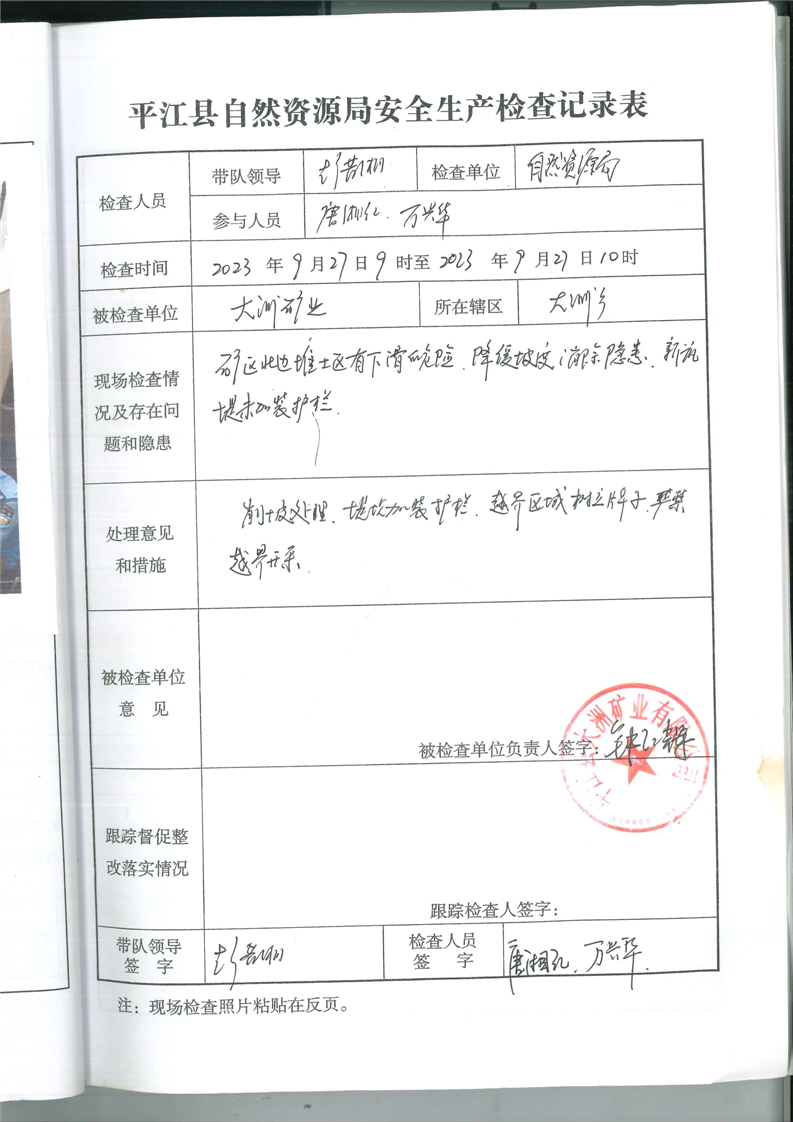 平江县自然资源局安全生产检查记录表
检查人员 带队领导 检查单位 自然资源局
参与人员 唐湘弘、万兴华
检查时间 2023 年 9 月 27 日 9 时至 2023 年 9 月 27 日 10 时
被检查单位 大洲矿业 所在辖区 大洲乡
现场检查情
况及存在问
题和隐患
矿区北边堆土区有下滑的危险、降缓坡度,消除隐患、新
堤未加装护栏.
处理意见
和措施
削坡处理、堤坎加装护栏、越界区域树立牌子、严禁
越界开采.
被检查单位
意 见
被检查单位负责人签字:
大洲矿业有限公
跟踪督促整
改落实情况
跟踪检查人签字:
带队领导
签 字
检查人员
签 字
唐湘弘、万兴华.
注:现场检查照片粘贴在反页。